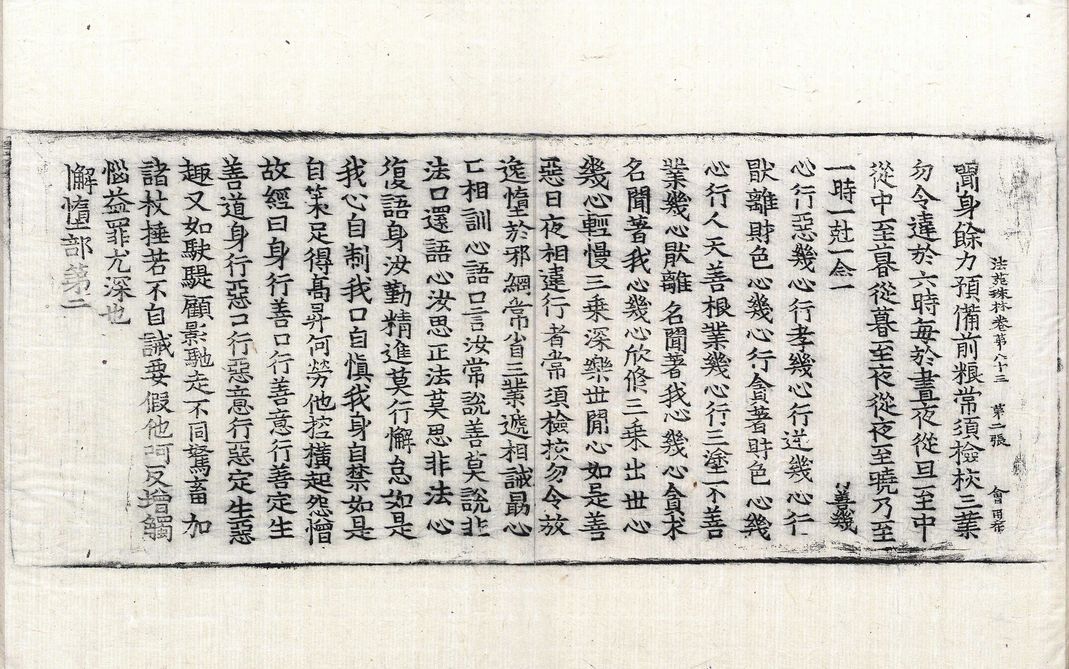 法苑珠林卷第八十三 第二張 會
聞身餘力預備前粮常須檢校三業
勿令違於六時每於晝夜從旦至中
從中至暮從暮至夜從夜至曉乃至
一時一尅一念一 善幾
心行惡幾心行孝幾心行逆幾心行
猒離財色心幾心行貪著財色心幾
心行人天善根業幾心行三塗不善
業幾心猒離名聞著我心幾心貪求
名聞著我心幾心欣修三乗出世心
幾心輕慢三乗深樂世閒心如是善
惡日夜相違行者常須檢挍勿令放
逸墮於邪網常省三業遞相誡勗心
口相訓心語口言汝常說善莫說非
法口還語心汝思正法莫思非法心
復語身汝勤精進莫行懈怠如是
我心自制我口自慎我身自禁如是
自策足得髙昇何勞他控橫起怨憎
故經曰身行善口行善意行善定生
善道身行惡口行惡意行惡定生惡
趣又如駃騠顧影馳走不同駑畜加
諸杖捶若不自誡要假他呵反增觸
惱益罪尤深也
懈憻部第二